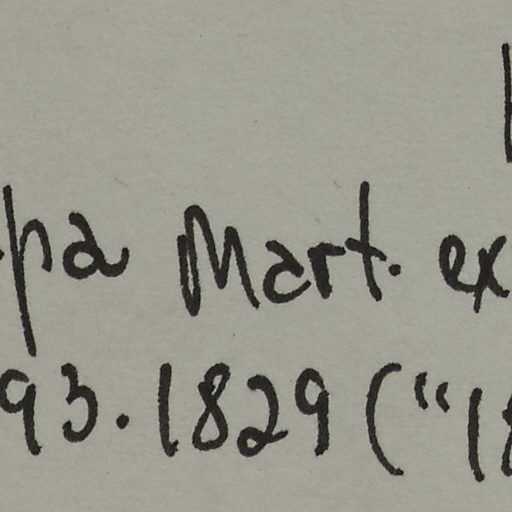 pa Mart. ex
93.1829 ("18